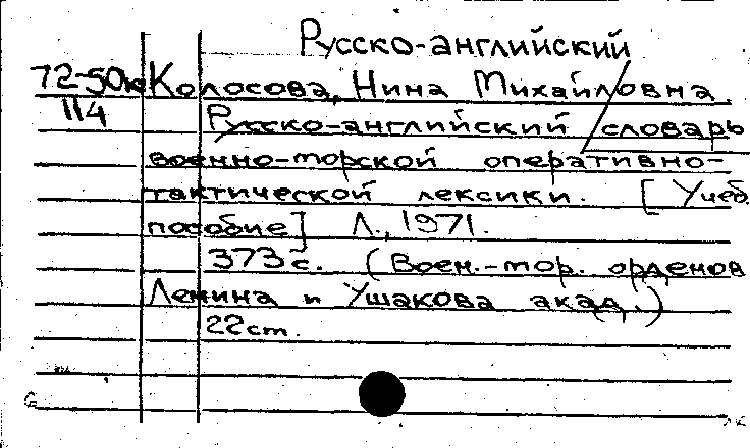 Русско-английский
72-50
114
Колосова, Нина Михайловна.
Русско-английский словарь
военно-морской оперативно-
тактической лексики. [Учеб.
пособие] Л., 1971.
373 с. (Воен.-мор. орденов
Ленина и Ушакова акад.)
22 см.